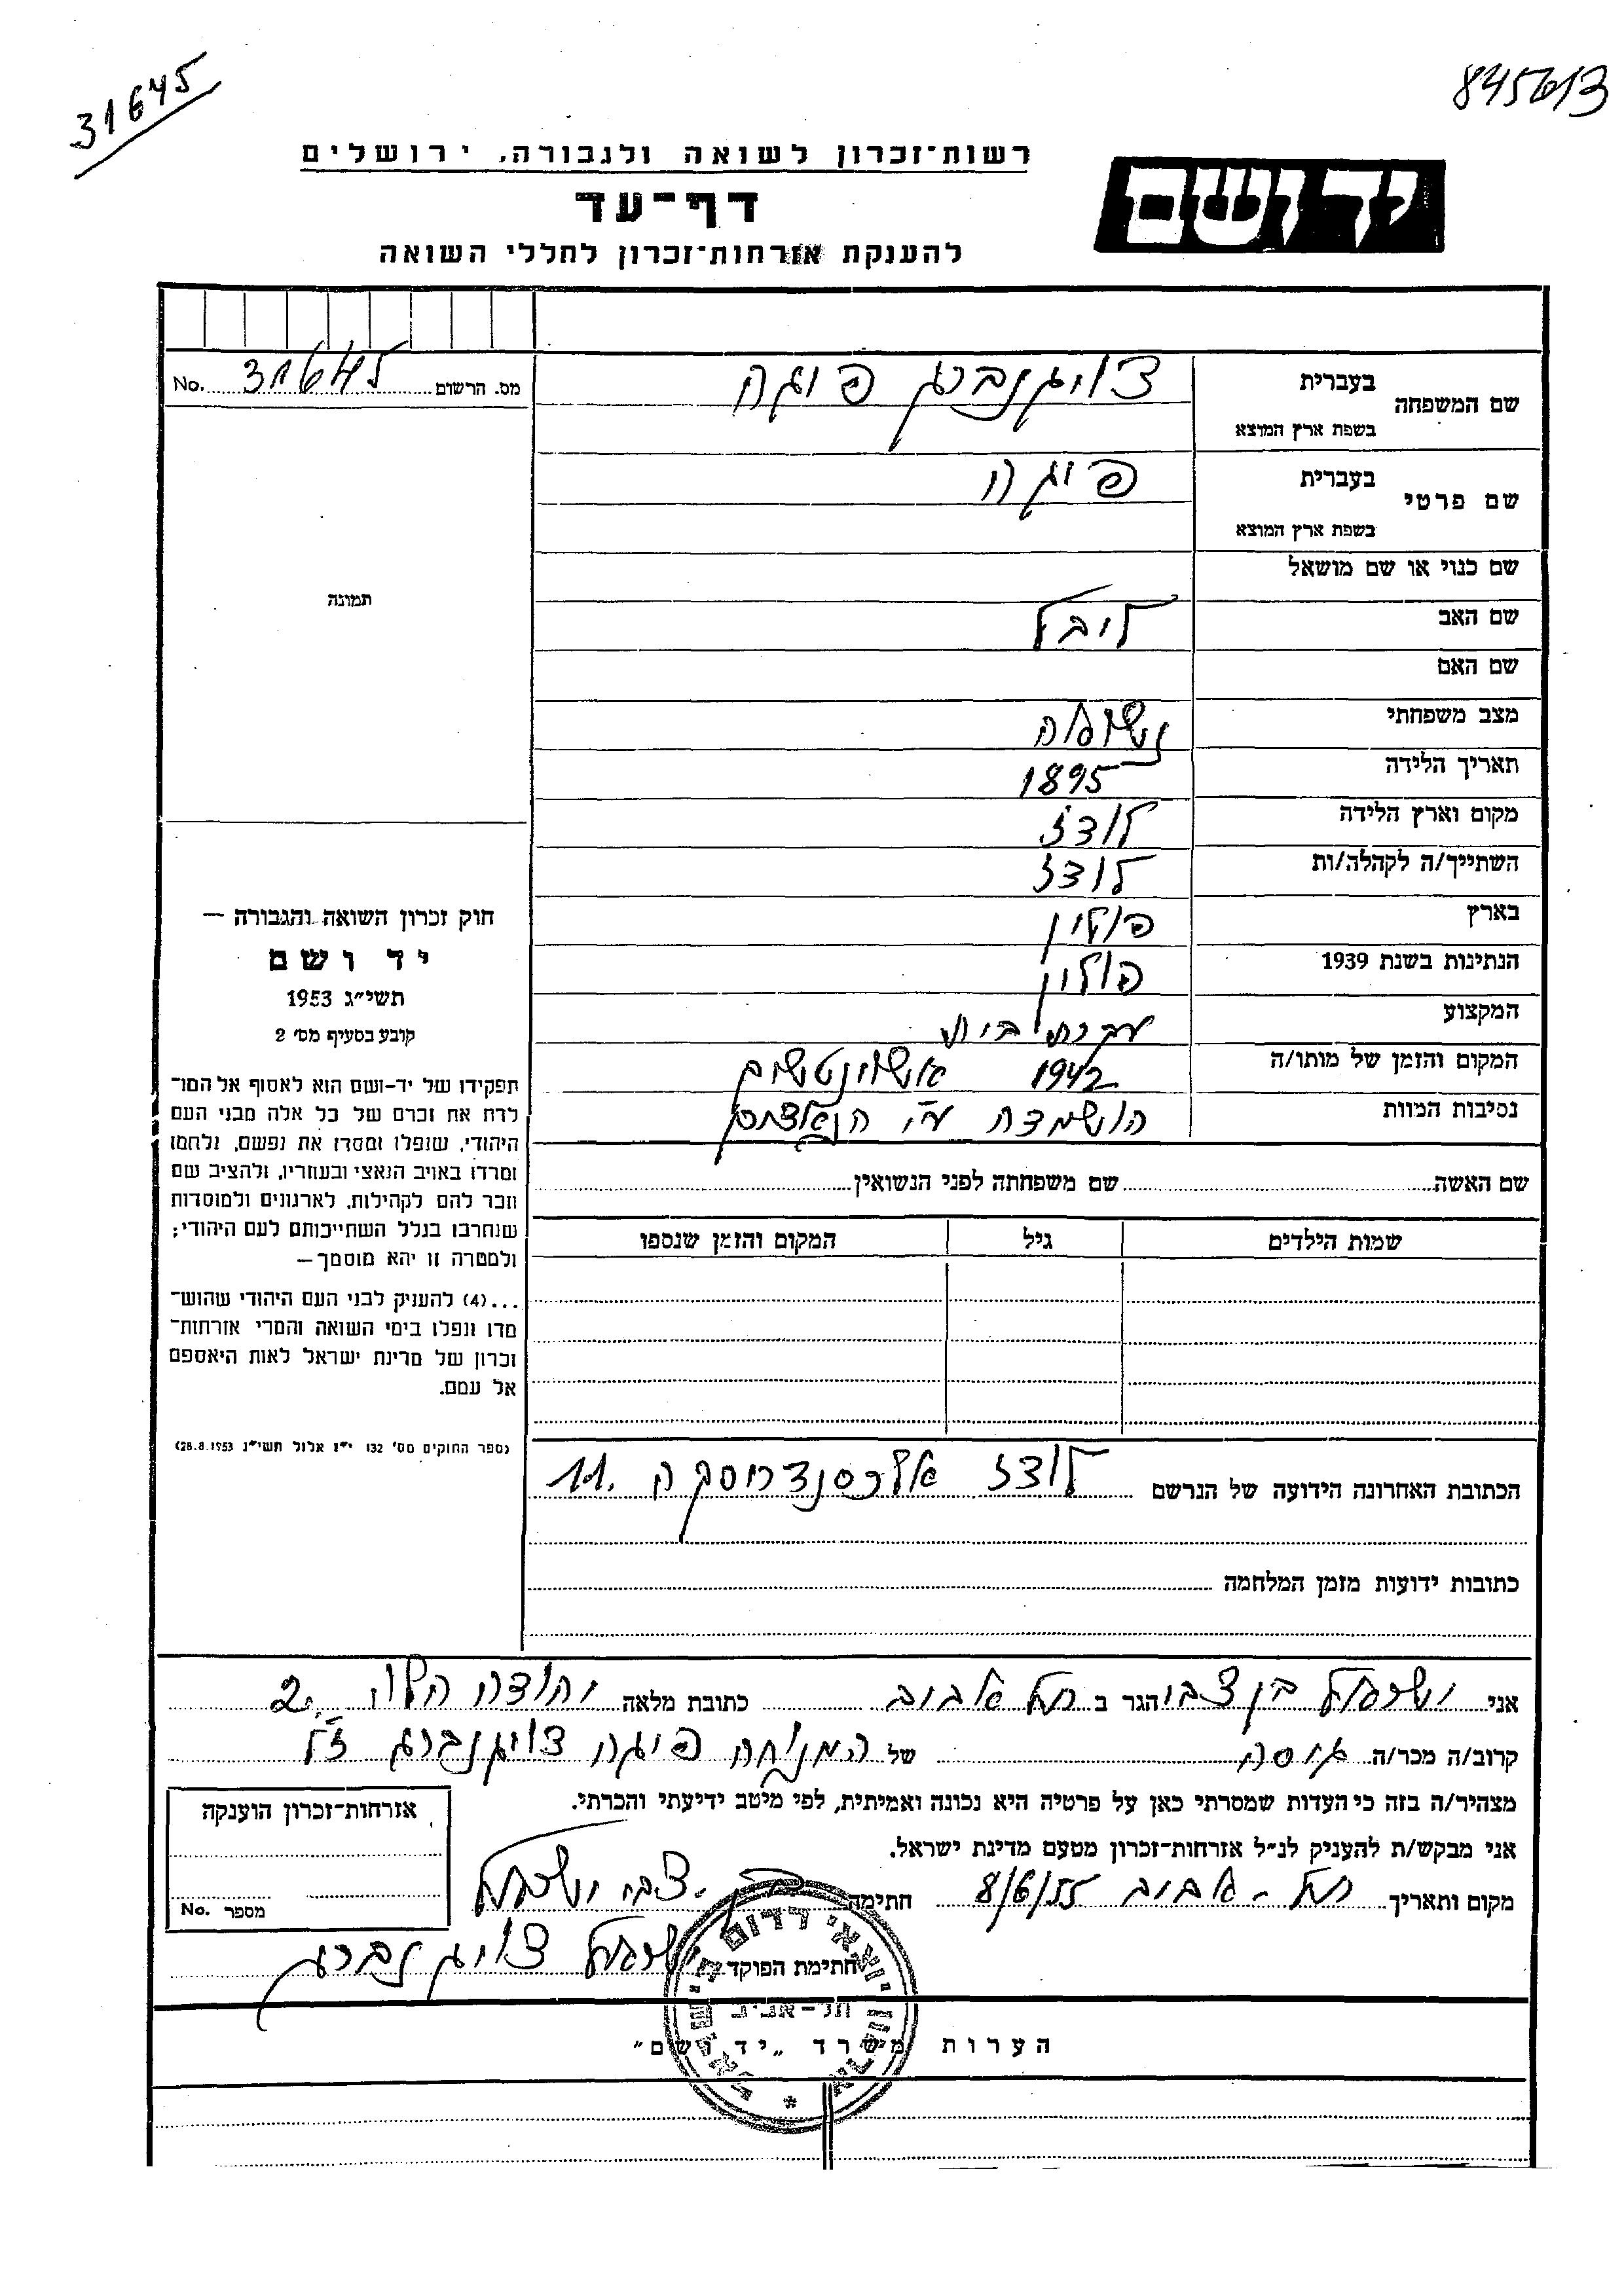 31645
845613
רשות־זכרון לשואה ולגבורה, ירושלים
יד ושם
דף־עד
להענקת אזרחות־זכרון לחללי השואה
מס. הרשום 31645 No.
שם המשפחה בעברית צויגנברג פיגה
בשפת ארץ המוצא
שם פרטי בעברית פיגה
בשפת ארץ המוצא
שם כנוי או שם מושאל
תמונה
שם האב ליבל
שם האם
מצב משפחתי נשואה
תאריך הלידה 1895
מקום וארץ הלידה לודז
השתייך/ה לקהלה/ות לודז
בארץ פולין
הנתינות בשנת 1939 פולין
המקצוע עקרת בית
המקום והזמן של מותו/ה 1942 אושוינטשים
נסיבות המוות הושמדה ע"י
חוק זכרון השואה והגבורה —
יד ושם
תשי״ג 1953
קובע בסעיף מס׳ 2
תפקידו של יד־ושם הוא לאסוף אל המו־
לדת את זכרם של כל אלה מבני העם
היהודי, שנפלו ומסרו את נפשם, נלחמו
ומרדו באויב הנאצי ובעוזריו, ולהציב שם
וזכר להם לקהילות, לארגונים ולמוסדות
שנחרבו בגלל השתייכותם לעם היהודי;
ולמטרה זו יהא מוסמך—
...(4) להעניק לבני העם היהודי שהוש־
מדו ונפלו בימי השואה והמרי אזרחות־
זכרון של מדינת ישראל לאות היאספם
אל עמם.
(ספר החוקים מס׳ 132 י״ז אלול תשי״ג 28.8.1953)
שם האשה שם משפחתה לפני הנשואין
שמות הילדים גיל המקום והזמן שנספו
הכתובת האחרונה הידועה של הנרשם לודז אלכסנדרוסקה 11.
כתובות ידועות מזמן המלחמה
אני ישראל בן צבי הגר ב תל אביב כתובת מלאה יהודה הלוי 2
קרוב/ה מכר/ה גיסה של המנוחה פיגה צויגנברג ז"ל
מצהיר/ה בזה כי העדות שמסרתי כאן על פרטיה היא נכונה ואמיתית, לפי מיטב ידיעתי והכרתי.
אני מבקש/ת להעניק לנ״ל אזרחות־זכרון מטעם מדינת ישראל.
מקום ותאריך תל-אביב 8/6/55 חתימה בן-צבי ישראל
חתימת הפוקד ישראל צויגנברג
אזרחות־זכרון הוענקה
מספר No.
תל-אביב
הערות משרד „יד ושם״